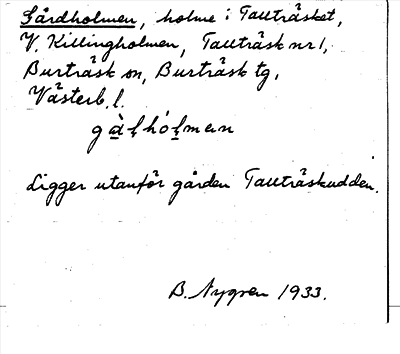 Gårdholmen, holme i Tallträsket,
V. Killingholmen, Tallträsk nr 1,
Burträsk sn, Burträsk tg,
Västerb. l.
gàḷhóḷmɐn
Ligger utanför gården Tallträskudden.
B. Nygren 1933.